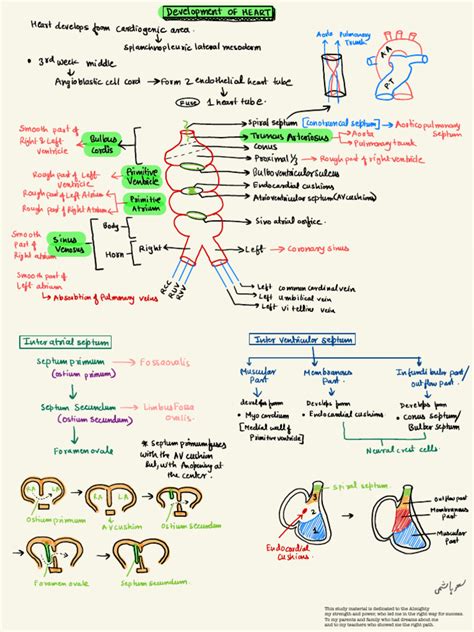 Development OF HEART
Heart develops form cardiogenic area.
Splanchnopleuric lateral mesoderm
• 3rd week middle
Angioblastic cell cord → Form 2 endothelial heart tube
Fuse 1 heart tube.
Aorta Pulmonary
Trunk
A.A
P.T
Spiral septum [Conotruncal septum] → Aorticopulmonary
septum
Truncus Arteriosus
Aorta
Pulmonary trunk
Conus
Proximal 1/3 → Rough part of right ventricle
Bulboventricular sulcus
Endocardial cushions
Atrioventricular septum (AV cushions)
Sino atrial orifice.
Smooth part of
Right & Left
ventricle
Bulbous
Cordis
Rough part of Left
ventricle
Primitive
Ventricle
Rough part of Left Atrium
Rough part of Right Atrium
Primitive
Atrium
Smooth
Part of
Right Atrium
Sinus
Venosus
Body
Horn
Right
Left → Coronary sinus
Smooth Part of
Left atrium
↳ Absorption of Pulmonary veins
RCC
RUV
RVV
Left common cardinal vein
Left umbilical vein
Left vitelline vein
Inter atrial septum
Septum primum → Fossa ovalis
(ostium primum)
Septum Secundum → Limbus Fossa
ovalis
(Ostium Secundum)
Foramen ovale
* Septum primum fuses
with the AV cushion
but, with An opening at
the center.
RA LA
RA LA
Ostium primum
AV cushion
Ostium secundum
Foramen ovale
Septum Secundum
Inter ventricular septum
Muscular
Part
develops form
• Myocardium
[Medial wall of
Primitive ventricle]
Membranous
Part
develops form
• Endocardial cushions
Infundibular part/
outflow part
Develops form
• Conus septum/
Bulbar Septum
Neural crest cells
Spiral septum
3
2
1
Endocardial
Cushions
Outflow part
Membranous
part
Muscular
Part
This study material is dedicated to the Almighty
my strength and power, who led me in the right way for success.
To my parents and family who had dreams about me
and to my teachers who showed me the right path.